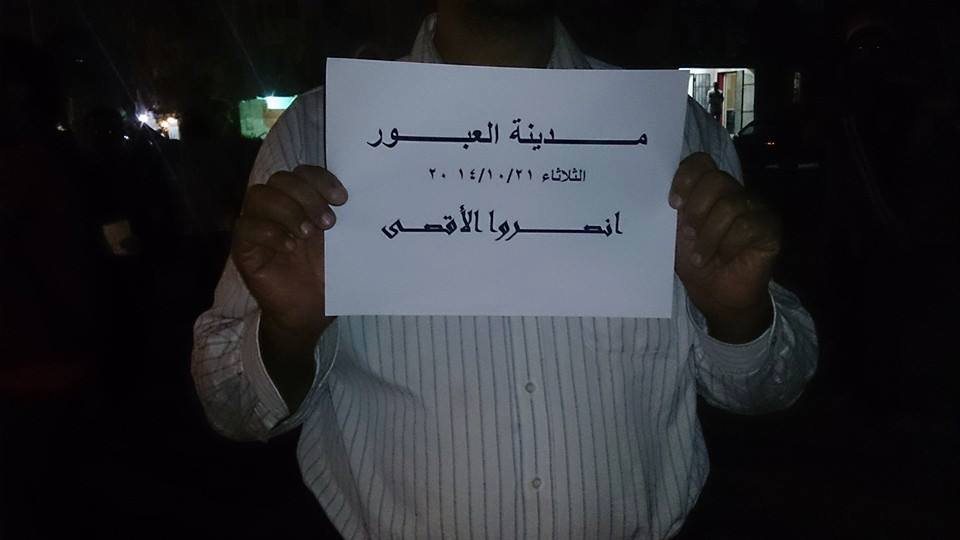 مدينة العبور
الثلاثاء ٢٠١٤/١٠/٢١
انصروا الأقصى